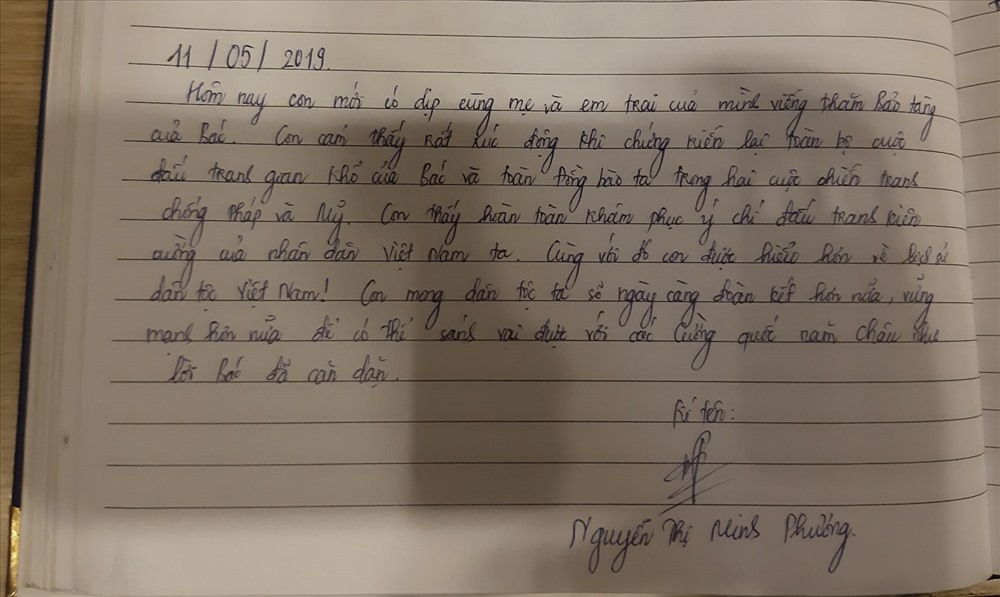 11/05/2019.
Hôm nay con mới có dịp cùng mẹ và em trai của mình viếng thăm Bảo tàng
của Bác. Con cảm thấy rất xúc động khi chứng kiến lại toàn bộ cuộc
đấu tranh gian khổ của Bác và toàn đồng bào ta trong hai cuộc chiến tranh
chống Pháp và Mỹ. Con thấy hoàn toàn khâm phục ý chí đấu tranh kiên
cường của nhân dân Việt Nam ta. Cùng với đó con được hiểu hơn về lịch sử
dân tộc Việt Nam! Con mong dân tộc ta sẽ ngày càng đoàn kết hơn nữa, vững
mạnh hơn nữa để có thể sánh vai được với các cường quốc năm châu như
lời Bác đã căn dặn.
Kí tên:
Nguyễn Thị Minh Phương.